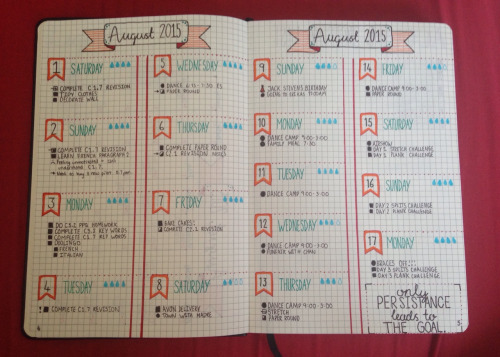 August 2015
1 SATURDAY
COMPLETE C1.7 REVISION
TIDY CLOTHES
DECORATE WALL
2 SUNDAY
COMPLETE C1.7 REVISION
LEARN FRENCH PARAGRAPH 2
3 MONDAY
DO C3.2 PPQ HOMEWORK
COMPLETE C3.2 KEY WORDS
COMPLETE C1.7 KEY WORDS
DUOLINGO:
FRENCH
ITALIAN
4 TUESDAY
COMPLETE C1.7 REVISION
4
5 WEDNESDAY
DANCE
PAPER ROUND
6 THURSDAY
COMPLETE PAPER ROUND
C1 REVISION
7 FRIDAY
BAKE CAKES!
COMPLETE C2.1 REVISION
8 SATURDAY
AVON DELIVERY
TOWN WITH MADRE
August 2015
9 SUNDAY
JACK STEVENS BIRTHDAY
10 MONDAY
DANCE CAMP 9:00-3:00
FAMILY MEAL 7:30
11 TUESDAY
DANCE CAMP 9:00-3:00
12 WEDNESDAY
DANCE CAMP 9:00-3:00
13 THURSDAY
DANCE CAMP 9:00-3:00
STRETCH
PAPER ROUND
14 FRIDAY
DANCE CAMP 9:00-3:00
PAPER ROUND
15 SATURDAY
AIRSHOW
DAY 1 SPLITS CHALLENGE
DAY 1 PLANK CHALLENGE
16 SUNDAY
DAY 2 SPLITS CHALLENGE
DAY 2 PLANK CHALLENGE
17 MONDAY
BRACES OFF!!!
DAY 3 SPLITS CHALLENGE
DAY 3 PLANK CHALLENGE
only
PERSISTANCE
leads to
THE GOAL.
5